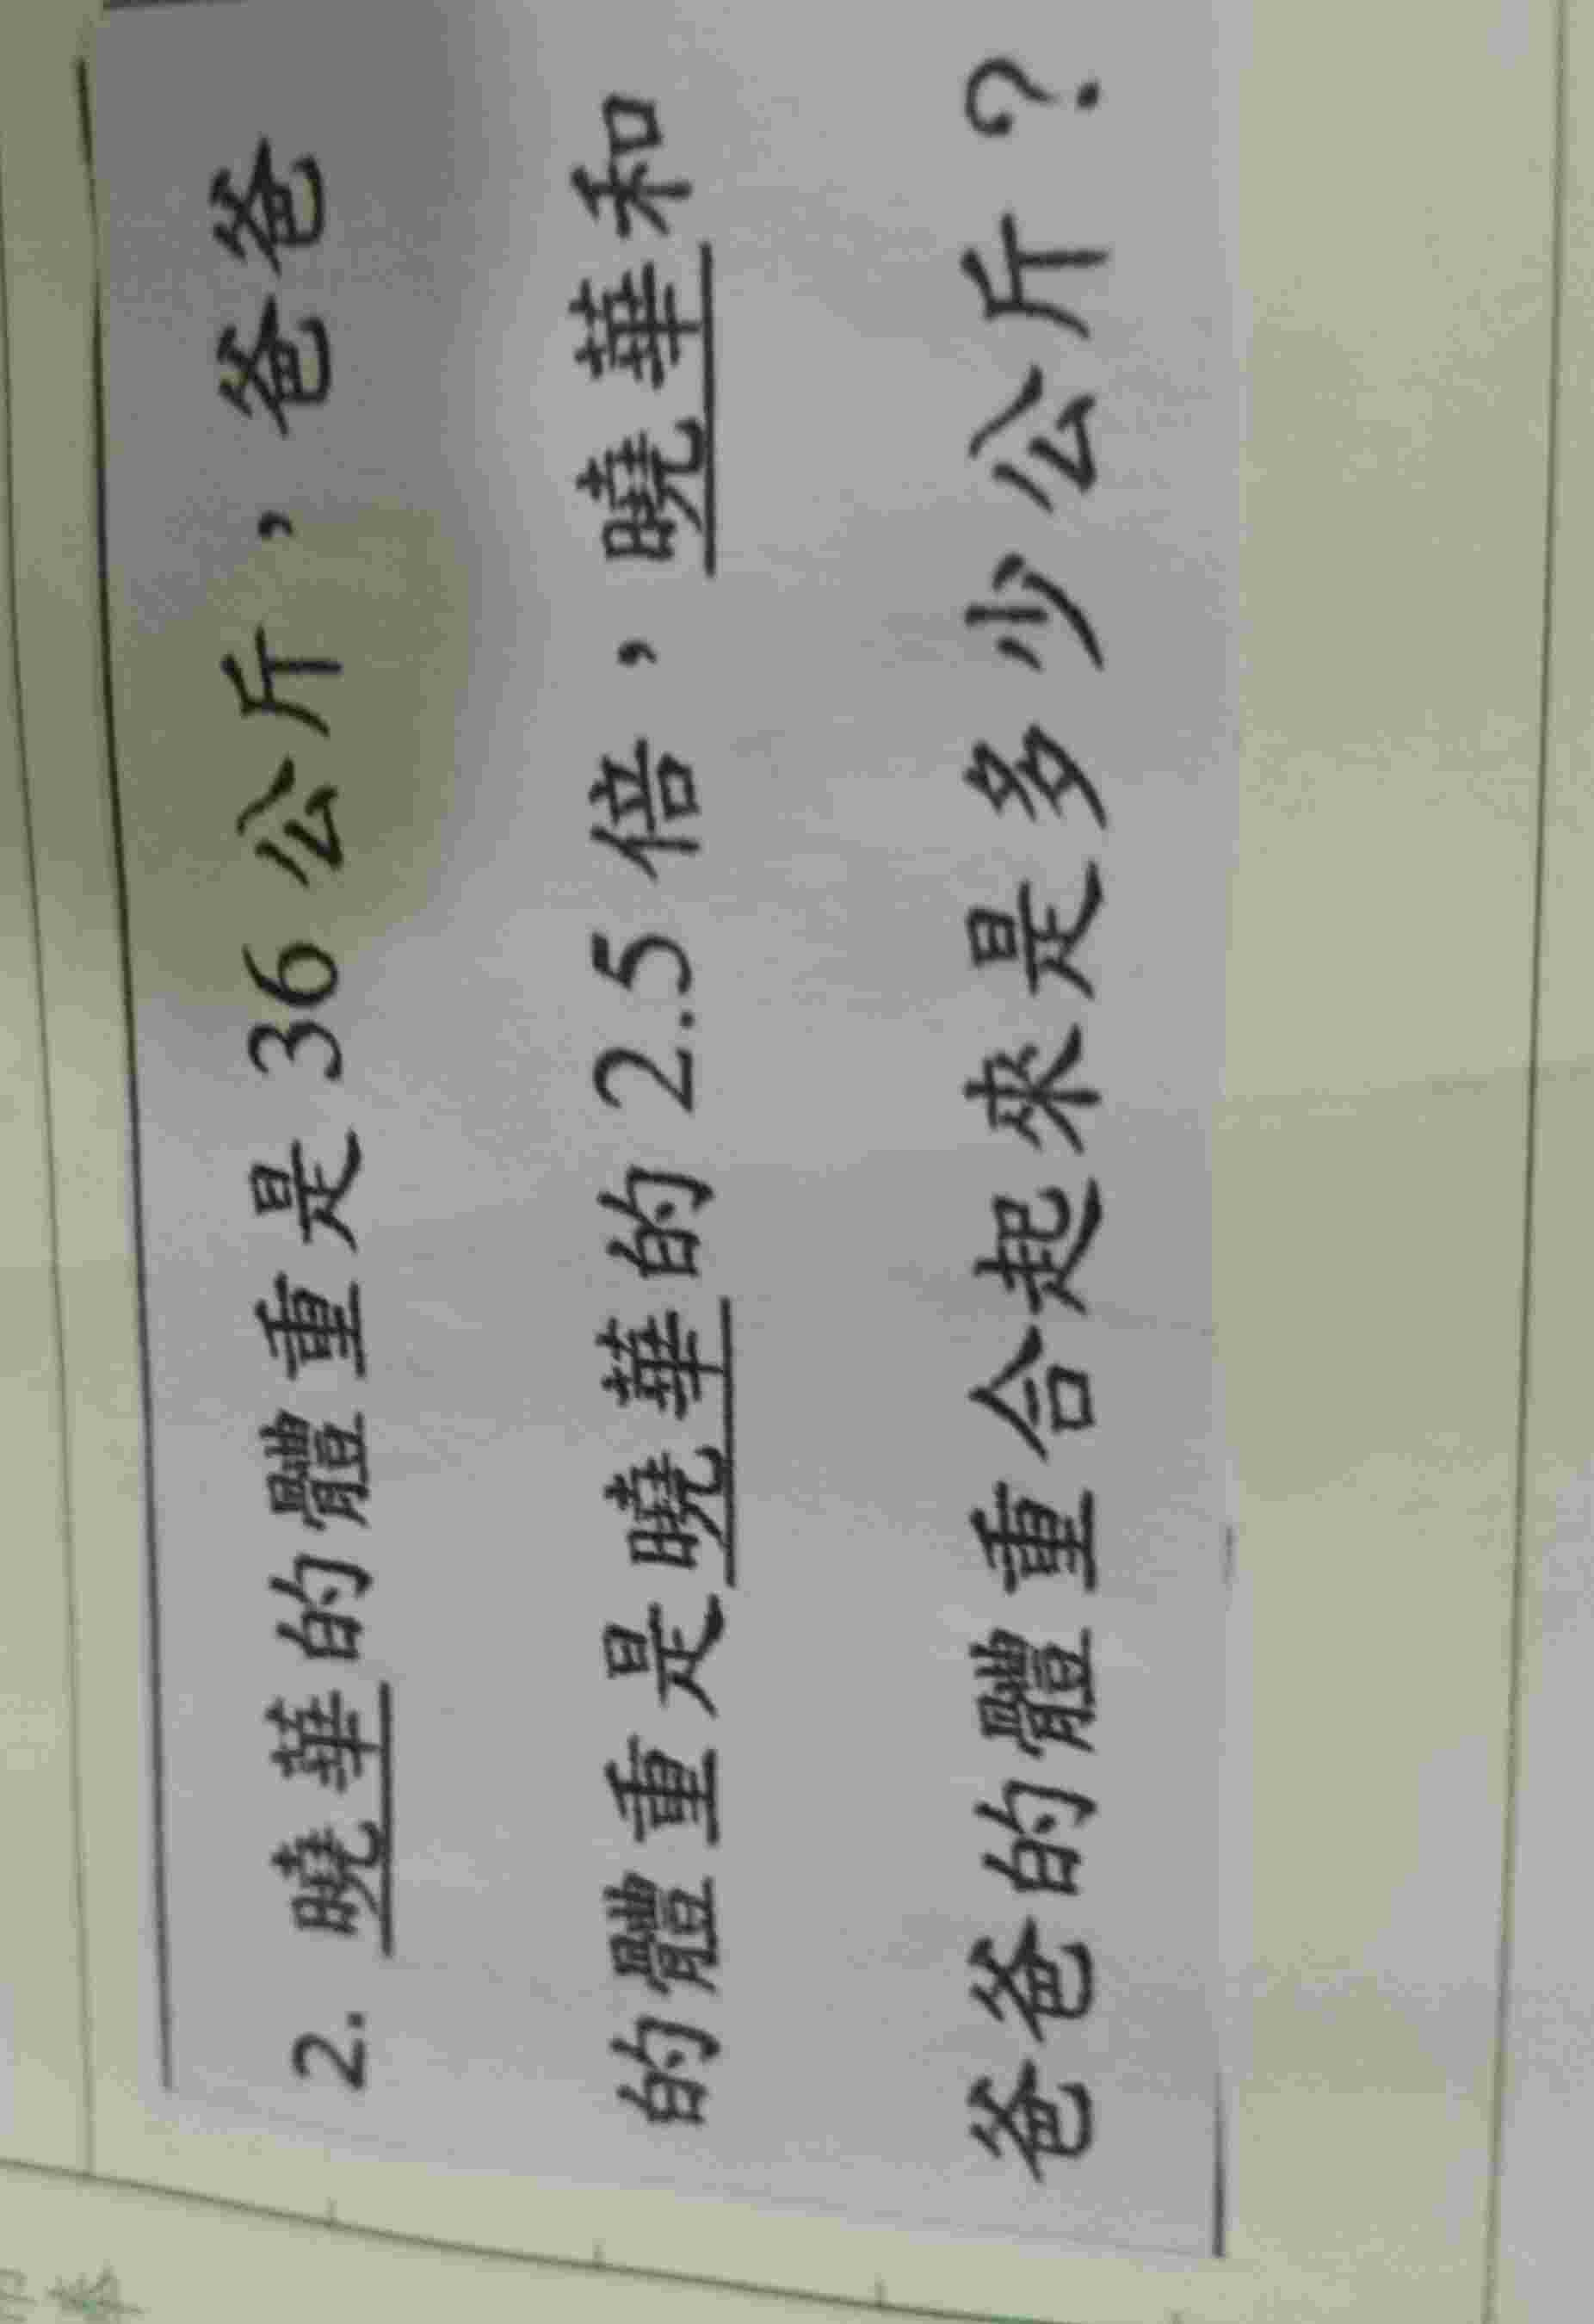 2. 曉華的體重是36公斤，爸爸
的體重是曉華的2.5倍，曉華和
爸爸的體重合起來是多少公斤？